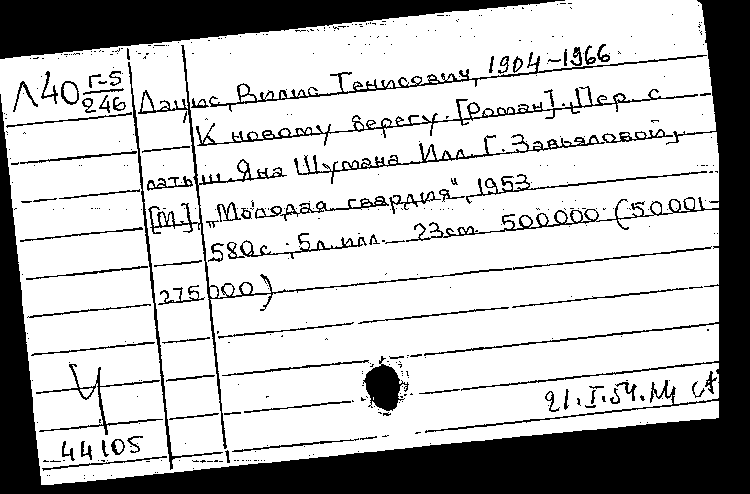 Л40 Г-5/246
Лацис, Вилис Тенисович, 1904-1966
К новому берегу. [Роман]. [Пер. с
латыш. Яна Шумана Илл. Г. Завьяловой,
[М.], „Молодая гвардия", 1953
580с.; 5л. илл. 23см 500000 (50001-
275000)
Ч
44105
21.I.54.